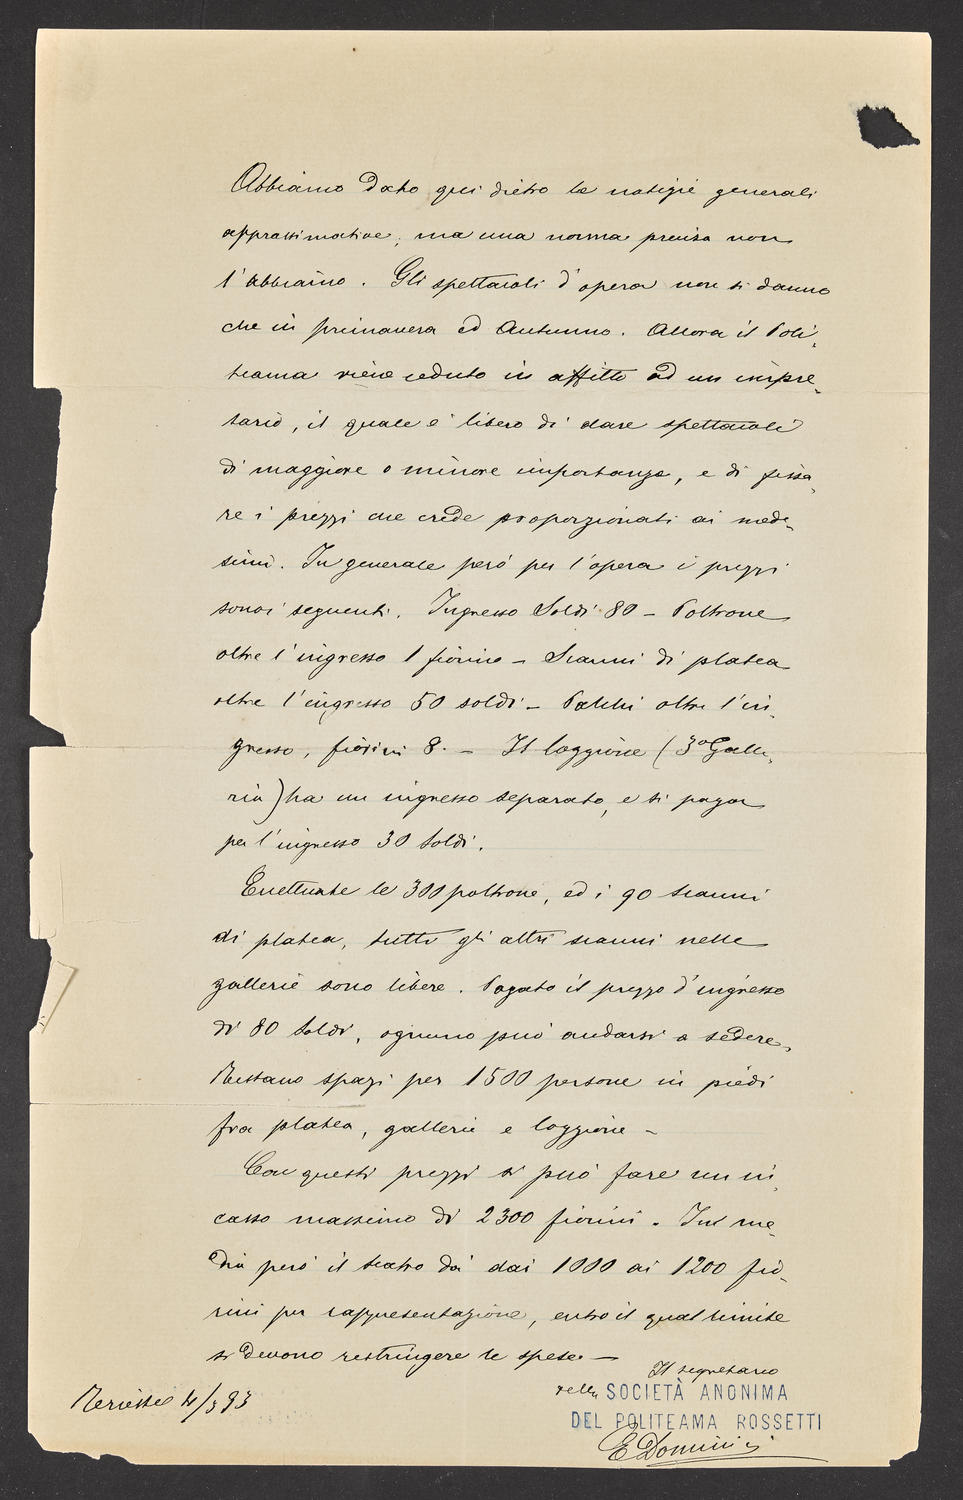 Abbiamo dato qui dietro le notizie generali
approssimative, ma una norma precisa non
l'abbiamo. Gli spettacoli d'opera non si danno
che in primavera ed Autunno. Allora il Poli-
teama viene ceduto in affitto ad un impre-
sario, il quale è libero di dare spettacoli
di maggiore o minore importanza, e di fissa-
re i prezzi che crede proporzionati ai mede-
simi. In generale però per l'opera i prezzi
sono i seguenti. Ingresso Soldi 80 - Poltrone
oltre l'ingresso 1 fiorino - Scanni di platea
oltre l'ingresso 50 soldi - Palchi oltre l'in-
gresso, fiorini 8. - Il loggione (3º Galle-
ria) ha un ingresso separato, e si paga
per l'ingresso 30 Soldi.
Eccettuate le 300 poltrone, ed i 90 scanni
di platea, tutti gli altri scanni nelle
gallerie sono libere. Pagato il prezzo d'ingresso
di 80 Soldi, ognuno può andarsi a sedere.
Restano spazi per 1500 persone in piedi
fra platea, gallerie e loggione -
Con questi prezzi si può fare un in-
casso massimo di 2300 fiorini. In me-
dia però il teatro dà dai 1000 ai 1200 fio-
rini per rappresentazione, entro il qual limite
si devono restringere le spese. -
Il segretario
della SOCIETÀ ANONIMA
DEL POLITEAMA ROSSETTI
Trieste 4/3 93
E Dominici